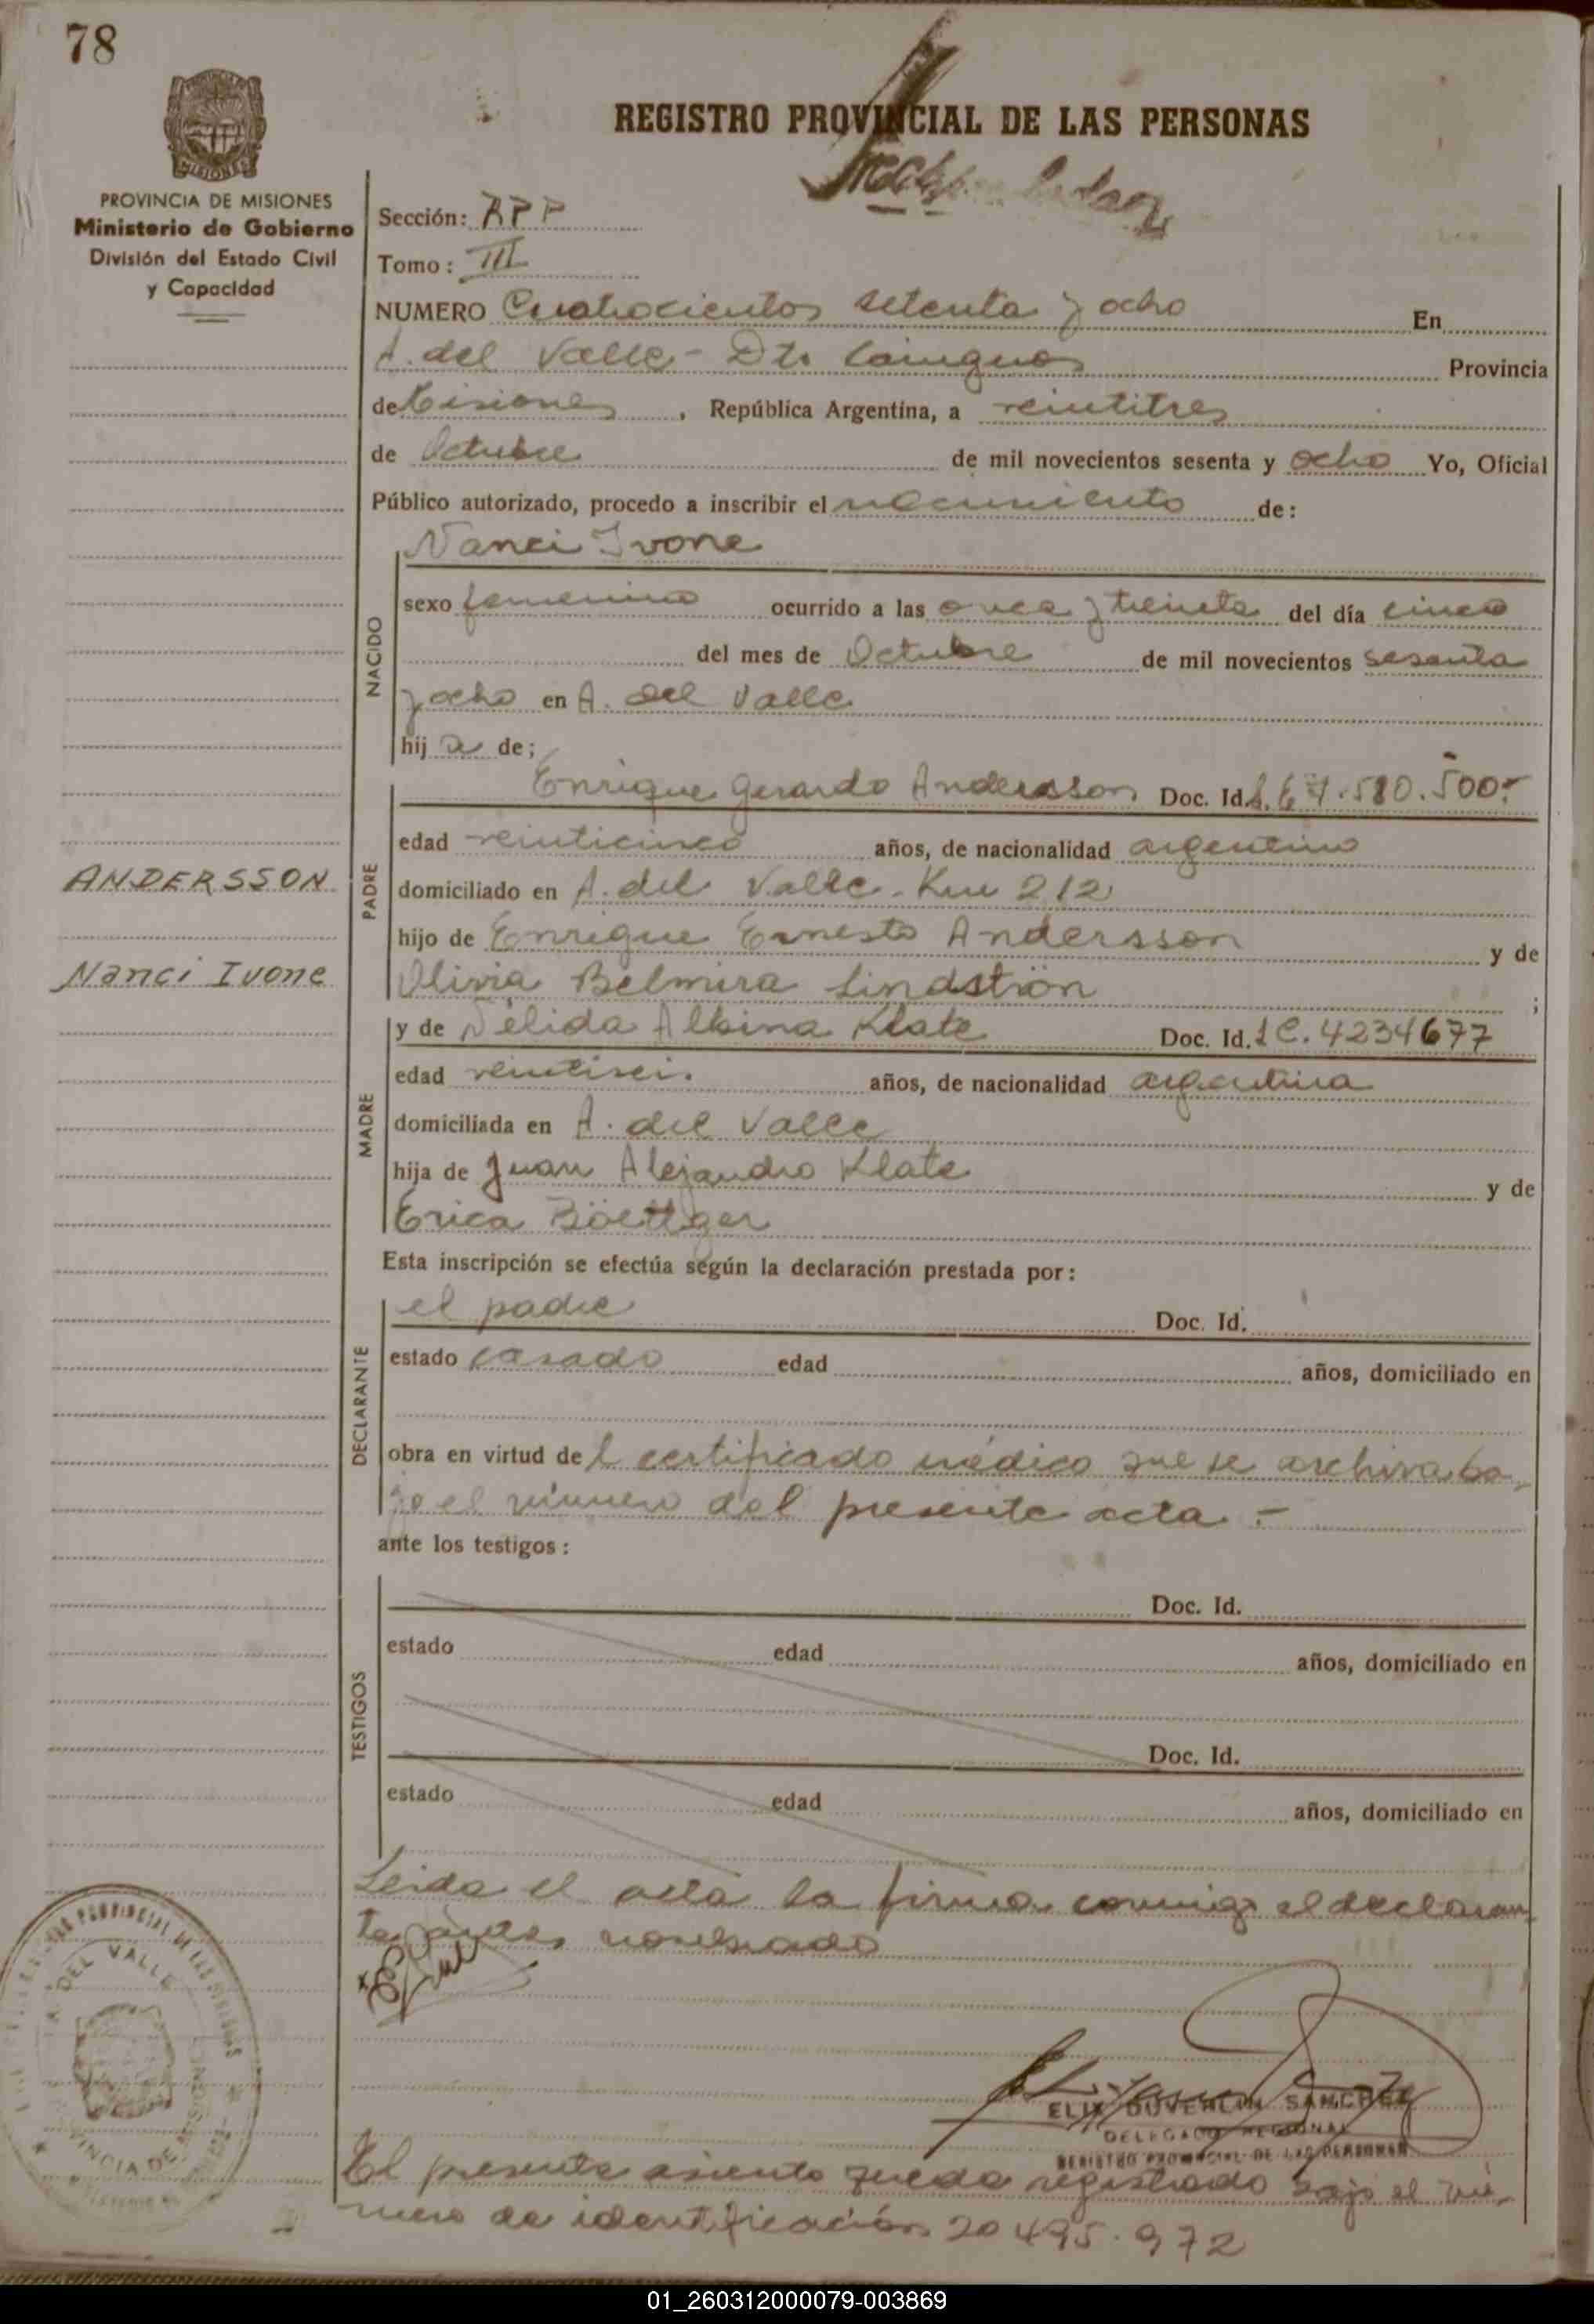 78
REGISTRO PROVINCIAL DE LAS PERSONAS
PROVINCIA DE MISIONES
Ministerio de Gobierno
División del Estado Civil
y Capacidad
Sección: RPP
Tomo: III
NUMERO Cuatrocientos setenta y ocho En
A. del Valle - Dto Cainguas Provincia
de Misiones, República Argentina, a veintitres
de Octubre de mil novecientos sesenta y ocho Yo, Oficial
Público autorizado, procedo a inscribir el nacimiento de:
Nanci Ivone
NACIDO
sexo femenino ocurrido a las once y treinta del día cinco
del mes de Octubre de mil novecientos sesenta
y ocho en A. del Valle
hij a de;
Enrique Gerardo Andersson Doc. Id. 7.580.500.-
PADRE
edad veinticinco años, de nacionalidad argentino
domiciliado en A. del Valle - Km 212
ANDERSSON
hijo de Enrique Ernesto Andersson y de
Nanci Ivone
Olivia Belmira Lindströn ;
y de Nélida Albina Klate Doc. Id. LC. 4234677
MADRE
edad veintiseis años, de nacionalidad argentina
domiciliada en A. del Valle
hija de Juan Alejandro Klate y de
Erica Böettger
Esta inscripción se efectúa según la declaración prestada por:
el padre Doc. Id.
DECLARANTE
estado casado edad años, domiciliado en
obra en virtud de l certificado médico que se archiva ba
jo el número del presente acta .-
ante los testigos:
TESTIGOS
Doc. Id.
estado edad años, domiciliado en
Doc. Id.
estado edad años, domiciliado en
Leida el acta la firma conmigo el declaran
te antes nombrado
DEL VALLE
ELIX DUVERLIN SANCHEZ
DELEGADO REGIONAL
REGISTRO PROVINCIAL DE LAS PERSONAS
El presente asiento queda registrado bajo el nú
mero de identificación 20 495.972
01_260312000079-003869